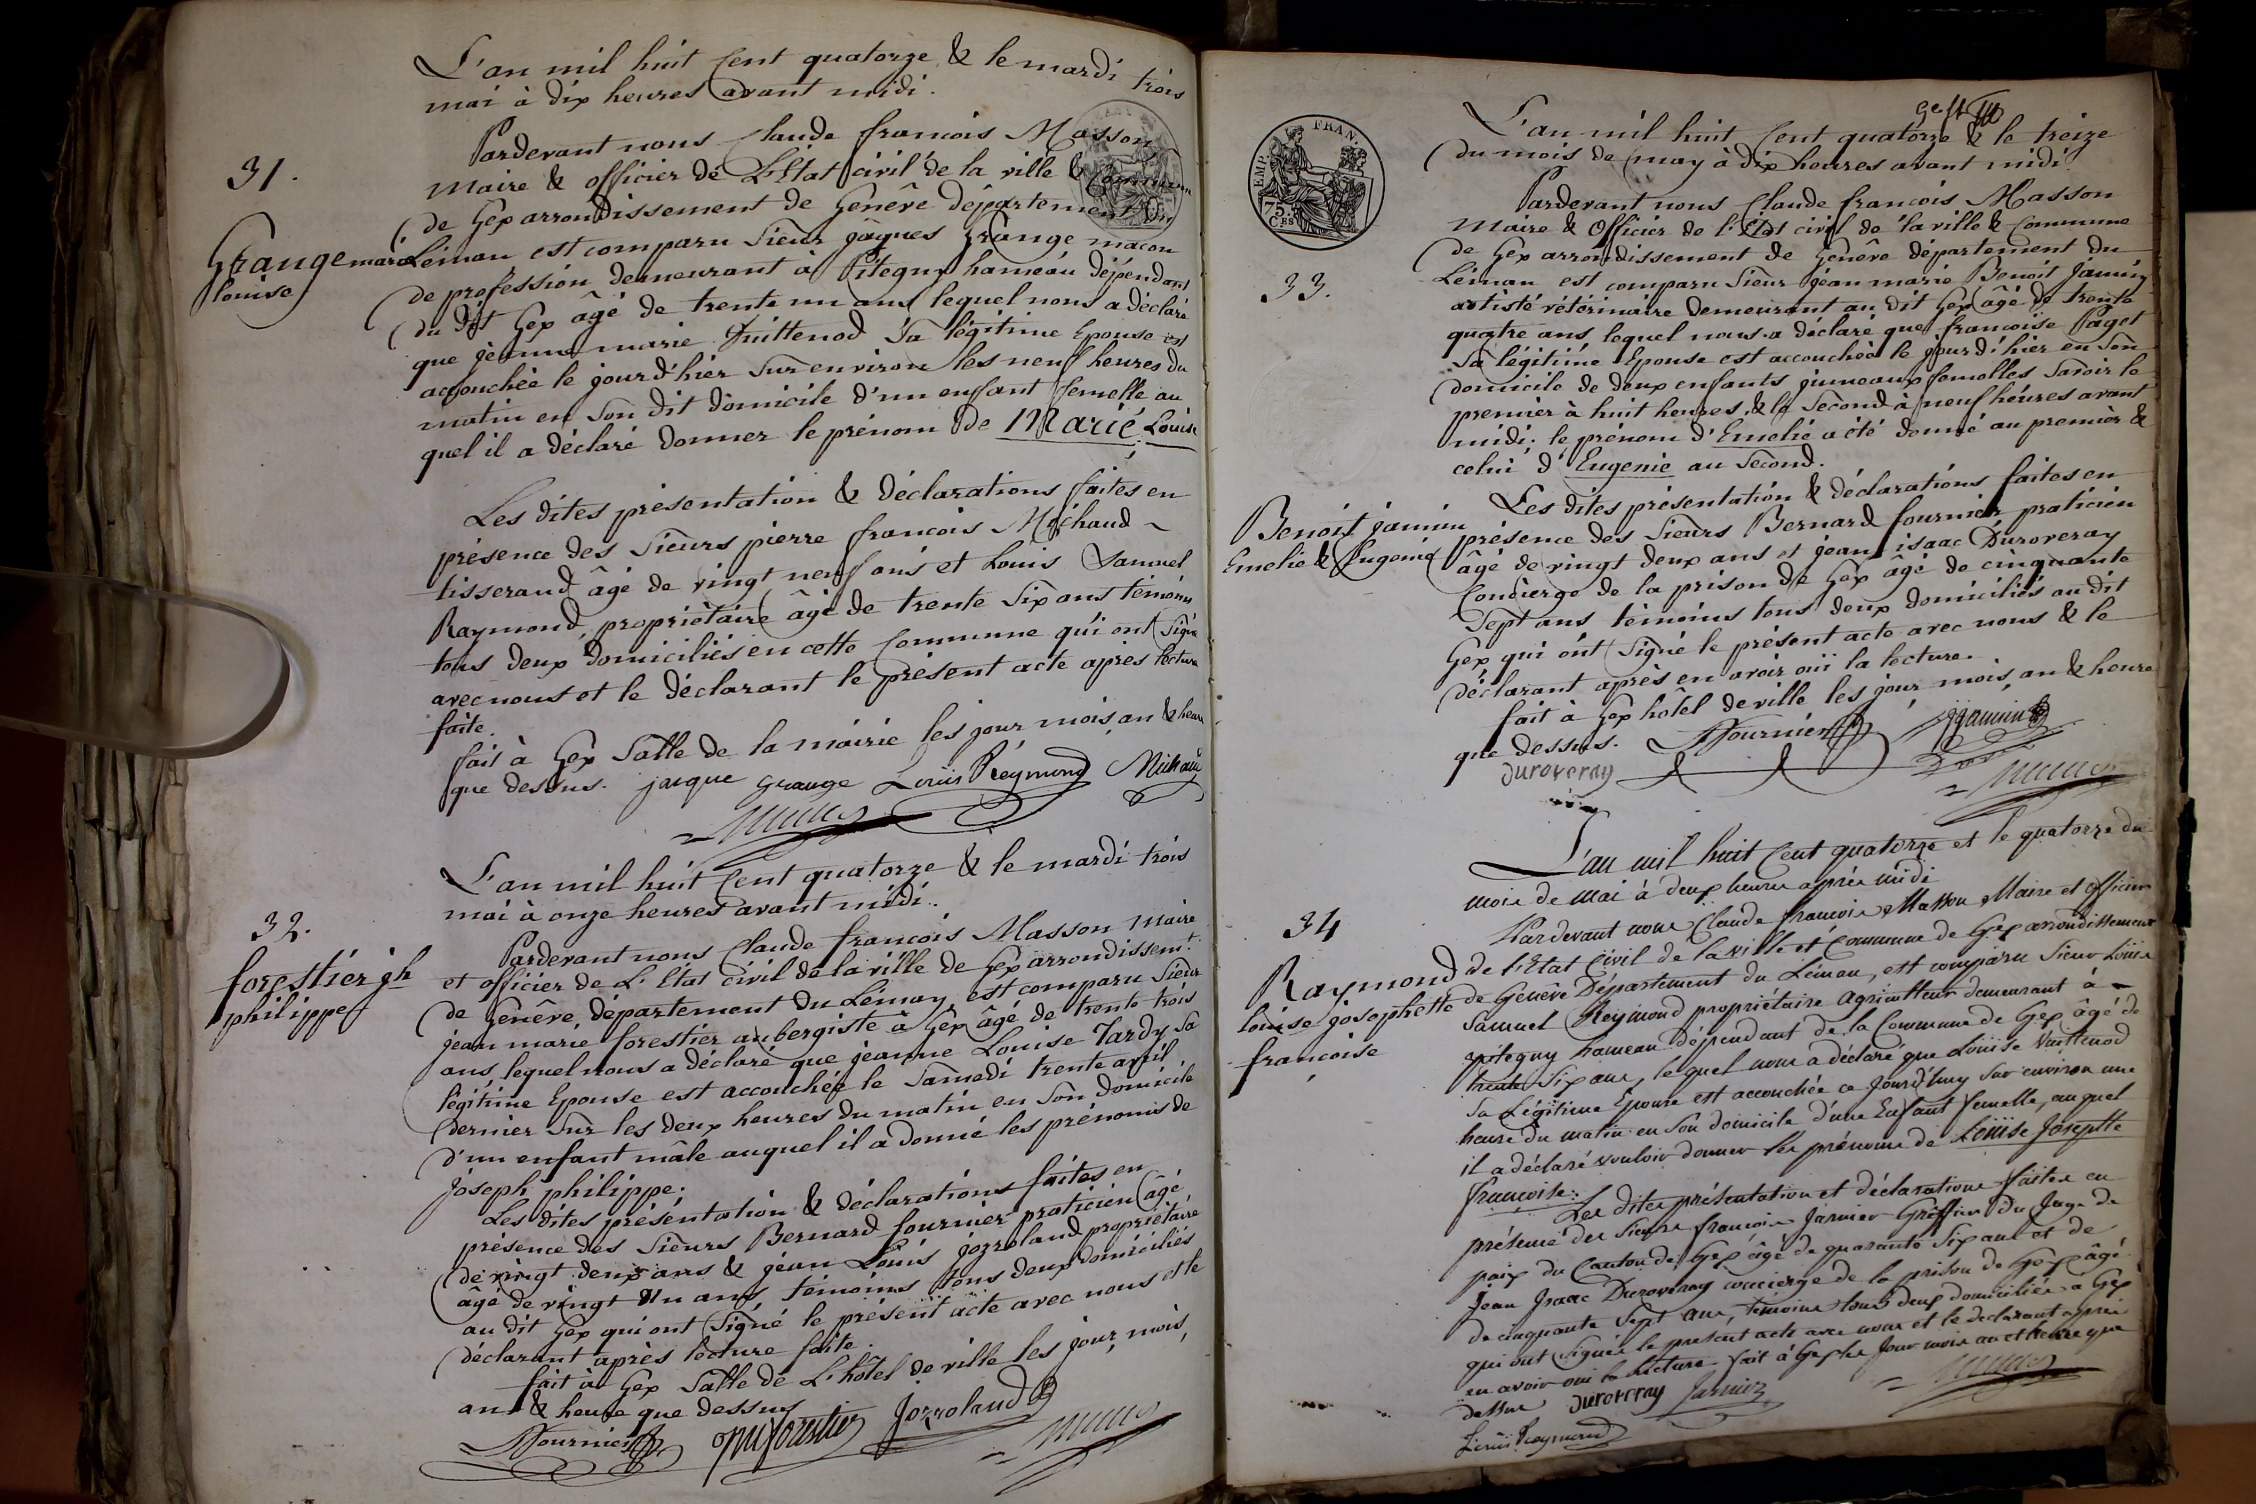 L'an mil huit Cent quatorze & le mardi trois
mai à dix heures avant midi.
Pardevant nous Claude francois Masson
Maire & officier de L'État civil de la ville & Commune
de Gex arrondissement de Genêve département du
31.
Grange marie
louise
Léman est comparu Sieur jâques Grange maçon
de profession demeurant à Pitegny hameau dépendant
du dit Gex âgé de trente un ans lequel nous a déclaré
que jeanne marie Vuittenod Sa légitime Epouse est
accouchée le jourd'hier Sur environ les neuf heures du
matin en Son dit domicile d'un enfant femelle au
quel il a déclaré donner le prénom de Marie Louise
Les dites présentation & déclarations faites en
présence des Sieurs pierre francois Michaud
tisserand âgé de vingt neuf ans et Louis Samuel
Raymond, propriétaire âgé de trente Six ans témoins
tous deux domiciliés en cette Commune qui ont Signé
avec nous et le déclarant le présent acte apres lecture
faite.
fait à Gex Salle de la mairie les jour mois, an & heure
que dessus. jaque Grange Louis Reymond Michaud
L'an mil huit Cent quatorze & le mardi trois
mai à onze heures avant midi.
32.
forestiér jh
philippe
Pardevant nous Claude francois Masson maire
et officier de L'Etat civil de la ville de Gex arrondissemt.
de Genêve, département du Léman, est comparu Sieur
jean marie forestier aubergiste à Gex âgé de trente trois
ans, lequel nous a déclaré que jeanne Louise Tardy Sa
légitime Epouse est accouchée le Samedi trente avril
dernier Sur les deux heures du matin en Son domicile
d'un enfant mâle auquel il a donné les prénoms de
joseph philippe.
Les dites présentation & déclarations faites en
présence des Sieurs Bernard fournier praticien âgé
de vingt deux ans & jean Louis jozroland propriétaire
âgé de vingt un ans témoins tous deux domiciliés
au dit Gex qui ont Signé le présent acte avec nous et le
déclarant après lecture faite.
fait à Gex Salle de L'hôtel de ville les jour, mois,
an & heure que dessus
fournier jm forestier Jozroland
EMP. FRAN.
75.
CES
L'an mil huit Cent quatorze & le treize
du mois de may à dix heures avant midi
Pardevant nous Claude francois Masson
Maire & Officier de l'Etat civil de la ville & Commune
de Gex arrondissement de Genêve département du
33.
Benoit jamin
Emelie & Eugenie
Léman est comparu Sieur jean marie Benoit jamin
artiste vétérinaire demeurant au dit Gex âgé de trente
quatre ans lequel nous a déclaré que francoise Paget
Sa légitime Epouse est accouchée le jourd'hier en Son
domicile de deux enfants jumeaux femelles Savoir le
premier à huit heures, & le Second à neuf heures avant
midi. le prénom d'Emelie a été donné au premier &
celui d'Eugenie au Second.
Les dites présentation & déclarations faites en
présence des Sieurs Bernard fournier praticien
âgé de vingt deux ans et jean isaac Duroveray
Concierge de la prison de Gex âgé de cinquante
Sept ans témoins tous deux domiciliés au dit
Gex qui ont Signé le présent acte avec nous & le
déclarant après en avoir ouï la lecture.
fait à Gex hôtel de ville les jour mois, an & heure
que dessus. fournier jamin
duroveray
L'an mil huit Cent quatorze et le quatorze du
mois de mai à deux heures après midi
34
Raymond
louise josephette
francoise
Pardevant nous Claude francois Masson Maire et officier
de l'Etat Civil de la ville et Commune de Gex arrondissement
de Genêve Département du Léman, est comparu Sieur Louis
Samuel Reymond propriétaire agriculteur demeurant à
pitegny hameau dépendant de la Commune de Gex âgé de
trente Six ans, lequel nous a déclaré que Louise Vuittenod
Sa Légitime Epouse est accouchée ce jourd'huy Sur environ une
heure du matin en Son domicile d'un Enfant femelle, auquel
il a déclaré vouloir donner les prénoms de Louise Josephte
francoise.
Les dites présentation et déclarations faites en
présence des Sieurs francois Jarnier Greffier du Juge de
paix du Canton de Gex âgé de quarante Six ans et de
Jean Isaac Duroveray concierge de la prison de Gex âgé
de cinquante Sept ans, témoins tous deux domiciliés à Gex
qui ont Signés le présent acte avec nous et le déclarant après
en avoir oui la lecture. fait à Gex les jour mois an et heure que
dessus duroveray Jarnier
Louis Reymond